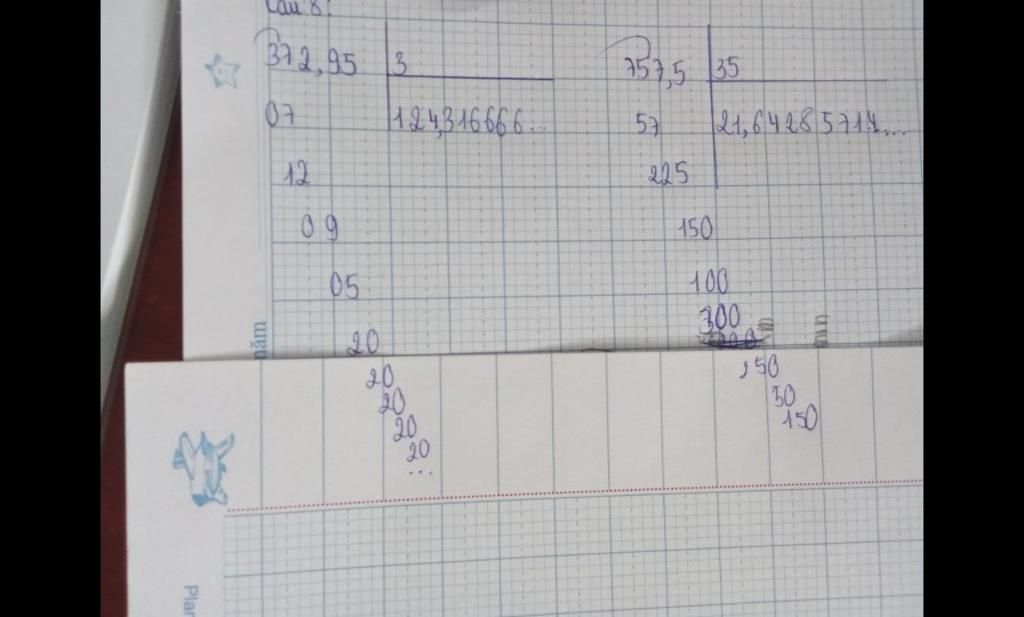 Câu 8:
372,95 3
07 124,316666...
12
09
05
20
20
20
20
20
...
757,5 35
57 21,64285714...
225
150
100
300
250
50
150
năm
Plan